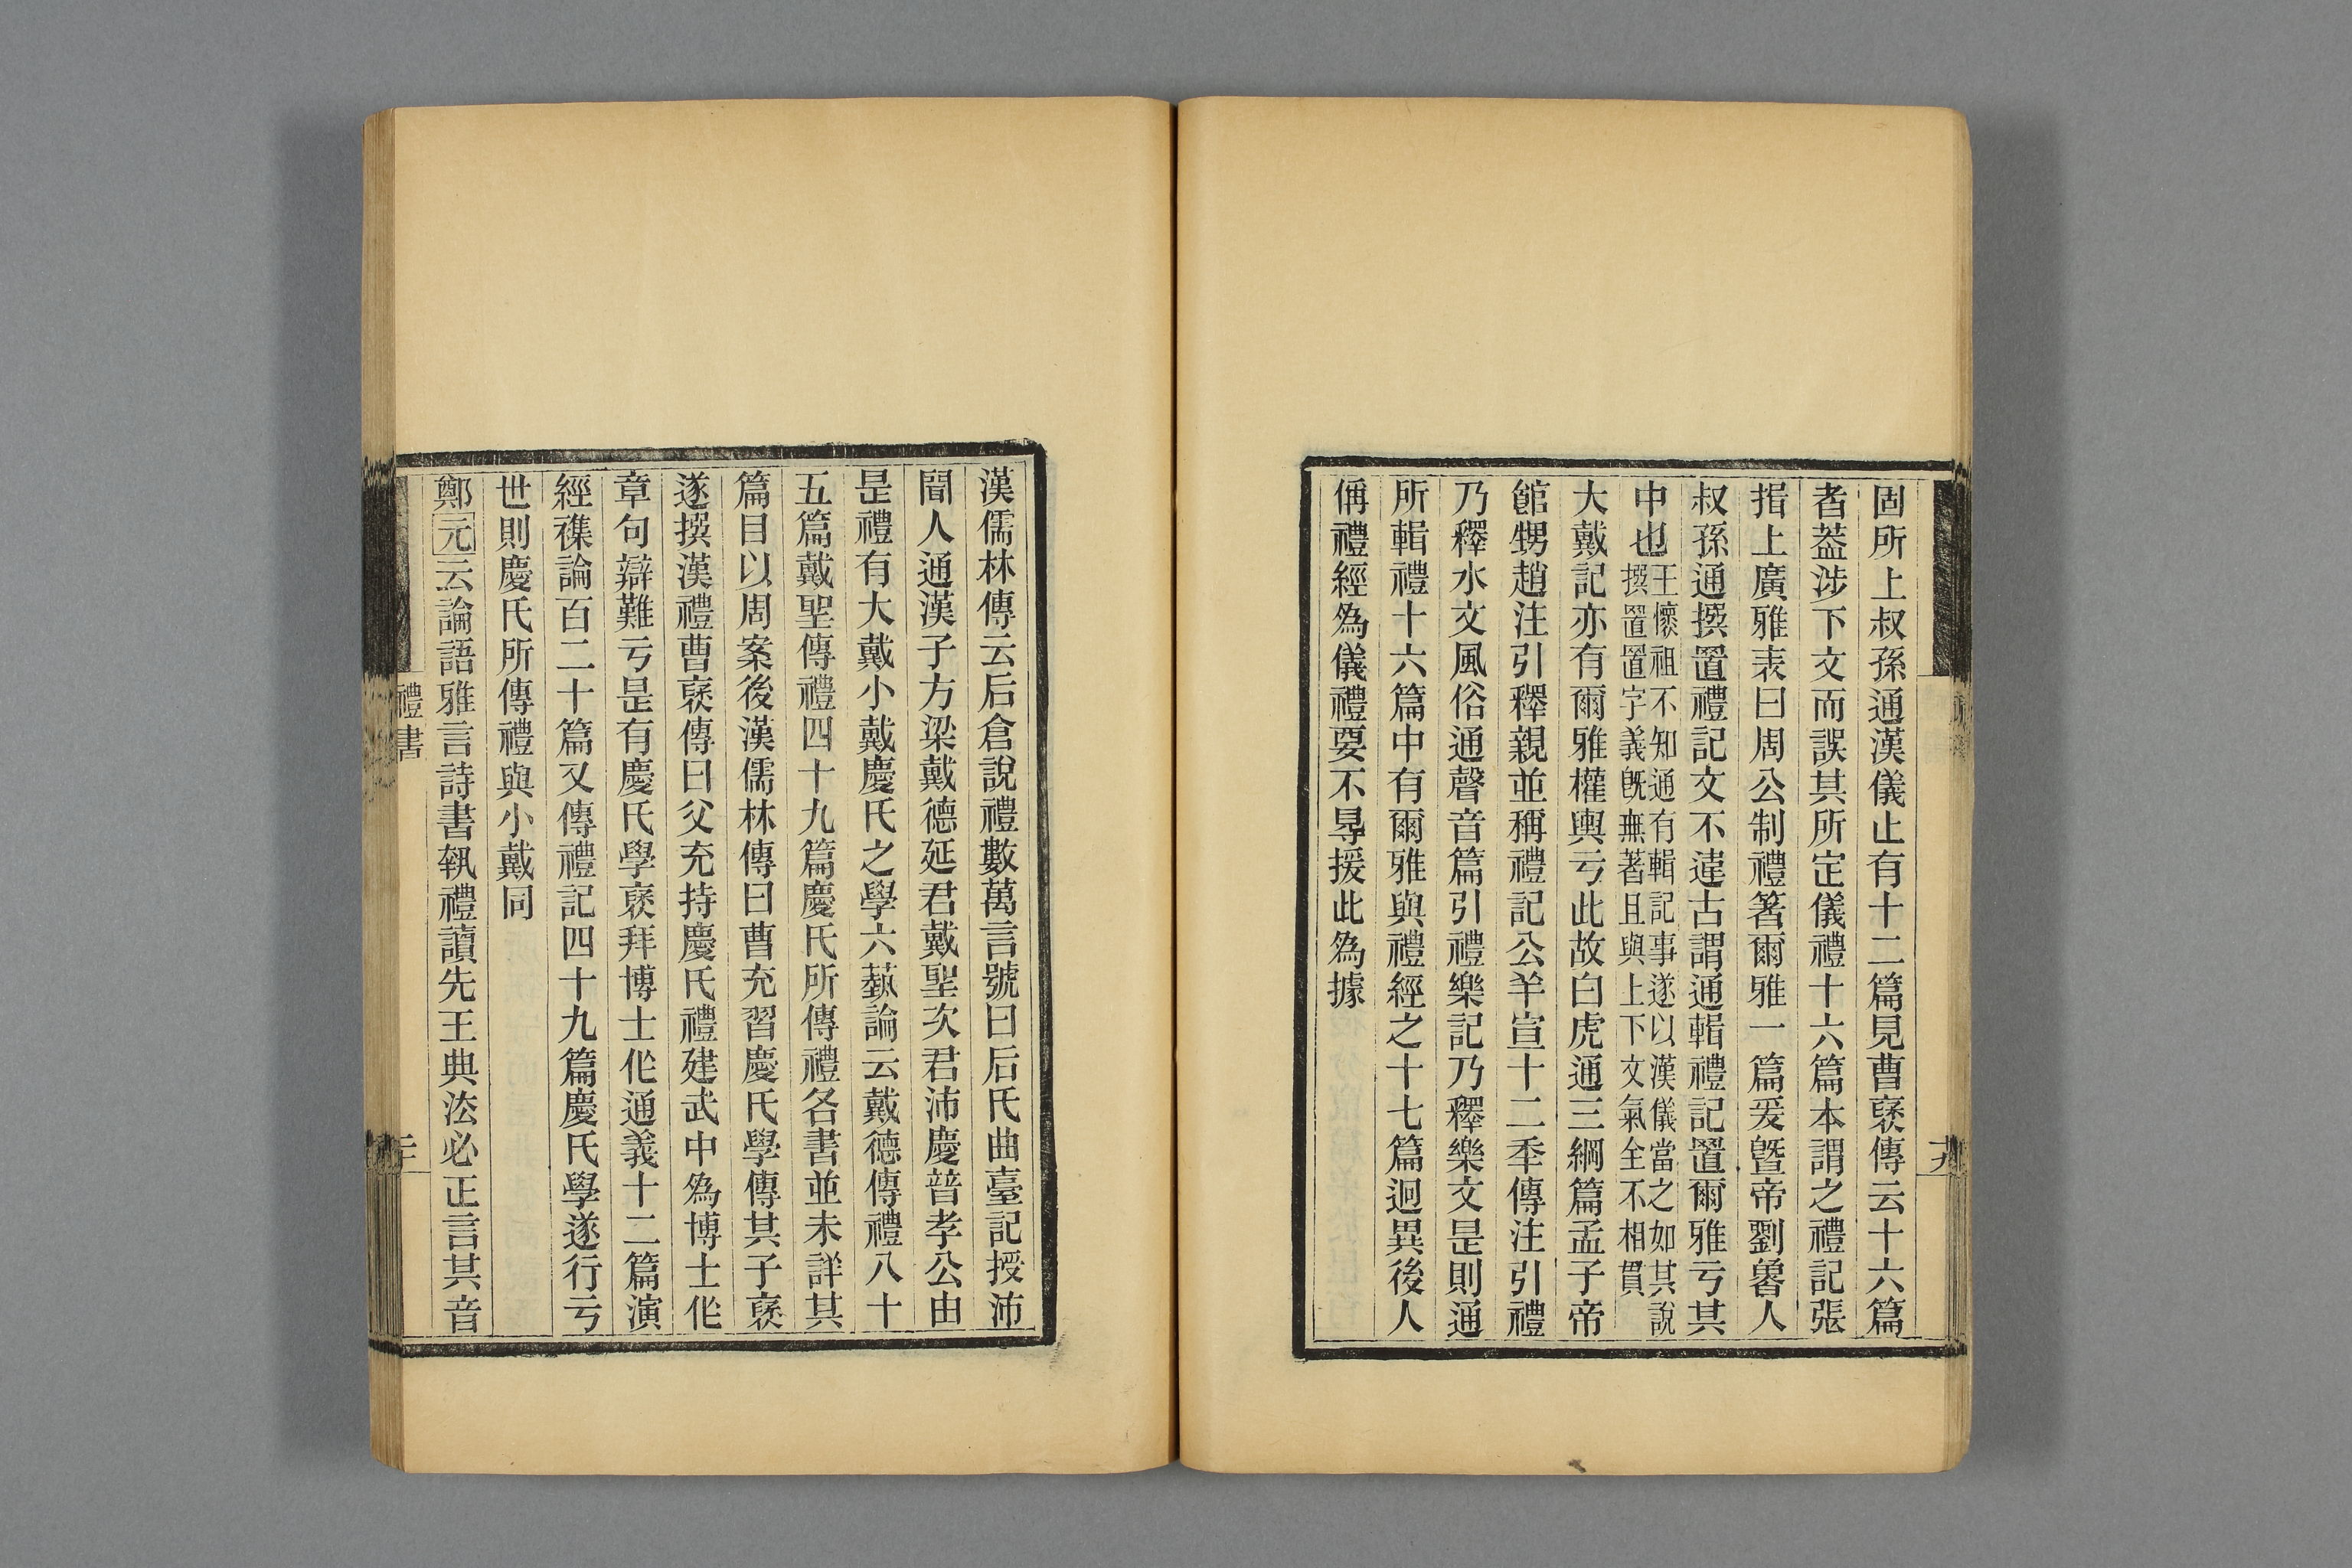 固所上叔孫通漢儀止有十二篇見曹襃傳云十六篇
者葢涉下文而誤其所定儀禮十六篇本謂之禮記張
揖上廣雅表曰周公制禮箸爾雅一篇爰曁帝劉魯人
叔孫通撰置禮記文不違古謂通輯禮記置爾雅亏其
中也王懷祖不知通有輯記事遂以漢儀當之如其說
撰置置字義旣無著且與上下文氣全不相貫
大戴記亦有爾雅權輿亏此故白虎通三綱篇孟子帝
館甥趙注引釋親並稱禮記公羊宣十二秊傳注引禮
乃釋水文風俗通聲音篇引禮樂記乃釋樂文是則通
所輯禮十六篇中有爾雅與禮經之十七篇迥異後人
偁禮經爲儀禮要不㝵援此爲據
十九
漢儒林傳云后倉說禮數萬言號曰后氏曲臺記授沛
聞人通漢子方梁戴德延君戴聖次君沛慶普孝公由
是禮有大戴小戴慶氏之學六藝論云戴德傳禮八十
五篇戴聖傳禮四十九篇慶氏所傳禮各書並未詳其
篇目以周案後漢儒林傳曰曹充習慶氏學傳其子襃
遂撰漢禮曹襃傳曰父充持慶氏禮建武中爲博士作
章句辯難亏是有慶氏學襃拜博士作通義十二篇演
經襍論百二十篇又傳禮記四十九篇慶氏學遂行亏
世則慶氏所傳禮與小戴同
鄭元云論語雅言詩書執禮讀先王典法必正言其音
禮書
二十